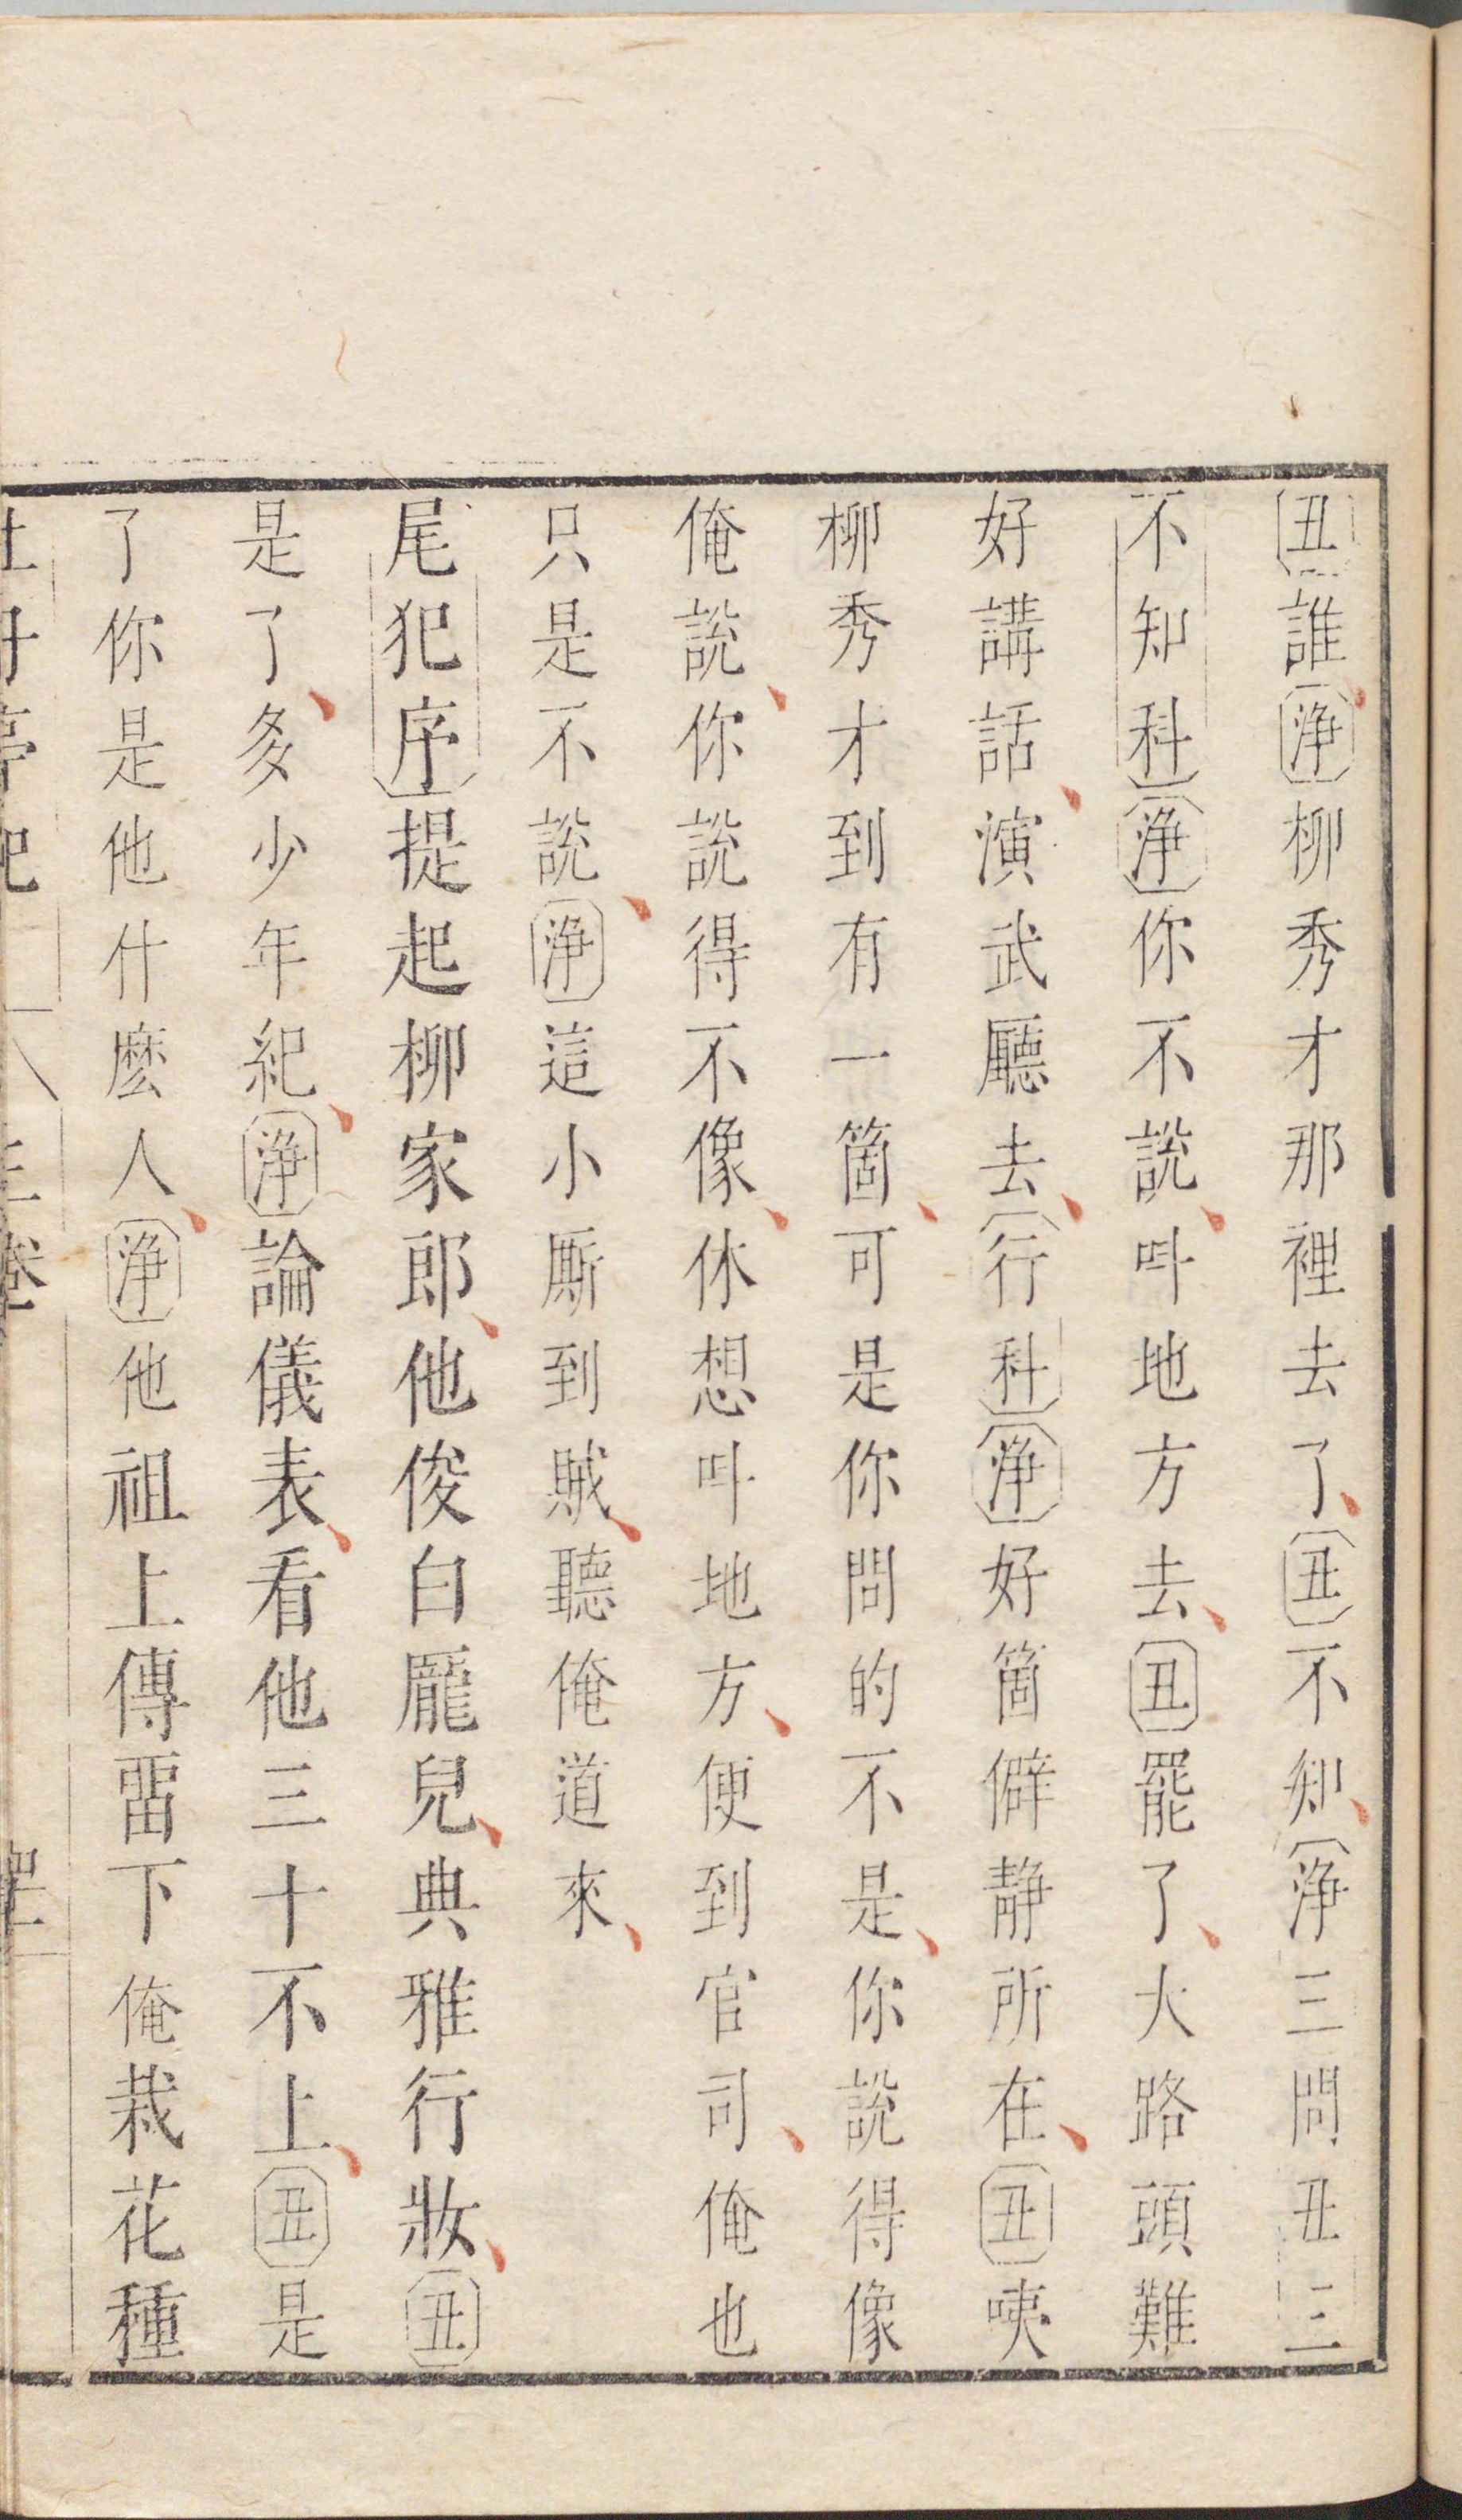 丑誰淨柳秀才那裡去了丑不知淨三問丑三
不知科淨你不說呌地方去丑罷了大路頭難
好講話演武廳去行科淨好箇僻靜所在丑咦
柳秀才到有一箇可是你問的不是你說得像
俺說你說得不像休想呌地方便到官司俺也
只是不說淨這小厮到賊聽俺道來
尾犯序提起柳家郎他俊白龎兒典雅行妝丑
是了多少年紀淨論儀表看他三十不上丑是
了你是他什麽人淨他祖上傳畱下俺栽花種